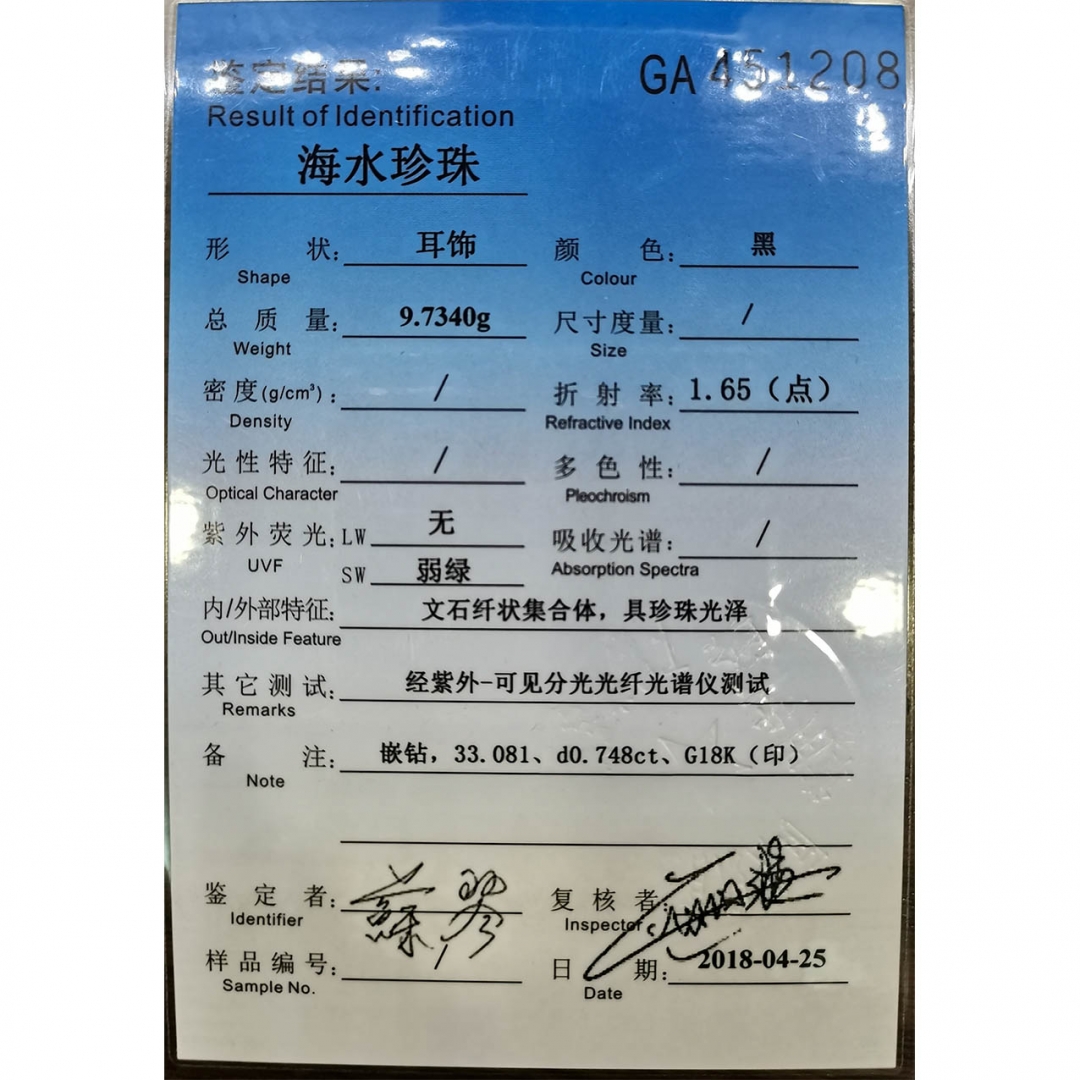 鉴定结果: GA 451208
Result of Identification
海水珍珠
形 状: 耳饰 颜 色: 黑
Shape Colour
总 质 量: 9.7340g 尺寸度量: /
Weight Size
密度(g/cm³): / 折 射 率: 1.65（点）
Density Refractive Index
光性特征: / 多 色 性: /
Optical Character Pleochroism
紫外荧光: LW 无 吸收光谱: /
UVF SW 弱绿 Absorption Spectra
内/外部特征: 文石纤状集合体，具珍珠光泽
Out/Inside Feature
其它测试: 经紫外-可见分光光纤光谱仪测试
Remarks
备 注: 嵌钻，33.081、d0.748ct、G18K（印）
Note
鉴 定 者: 蘇琴 复 核 者:
Identifier Inspector
样品编号: 日 期: 2018-04-25
Sample No. Date